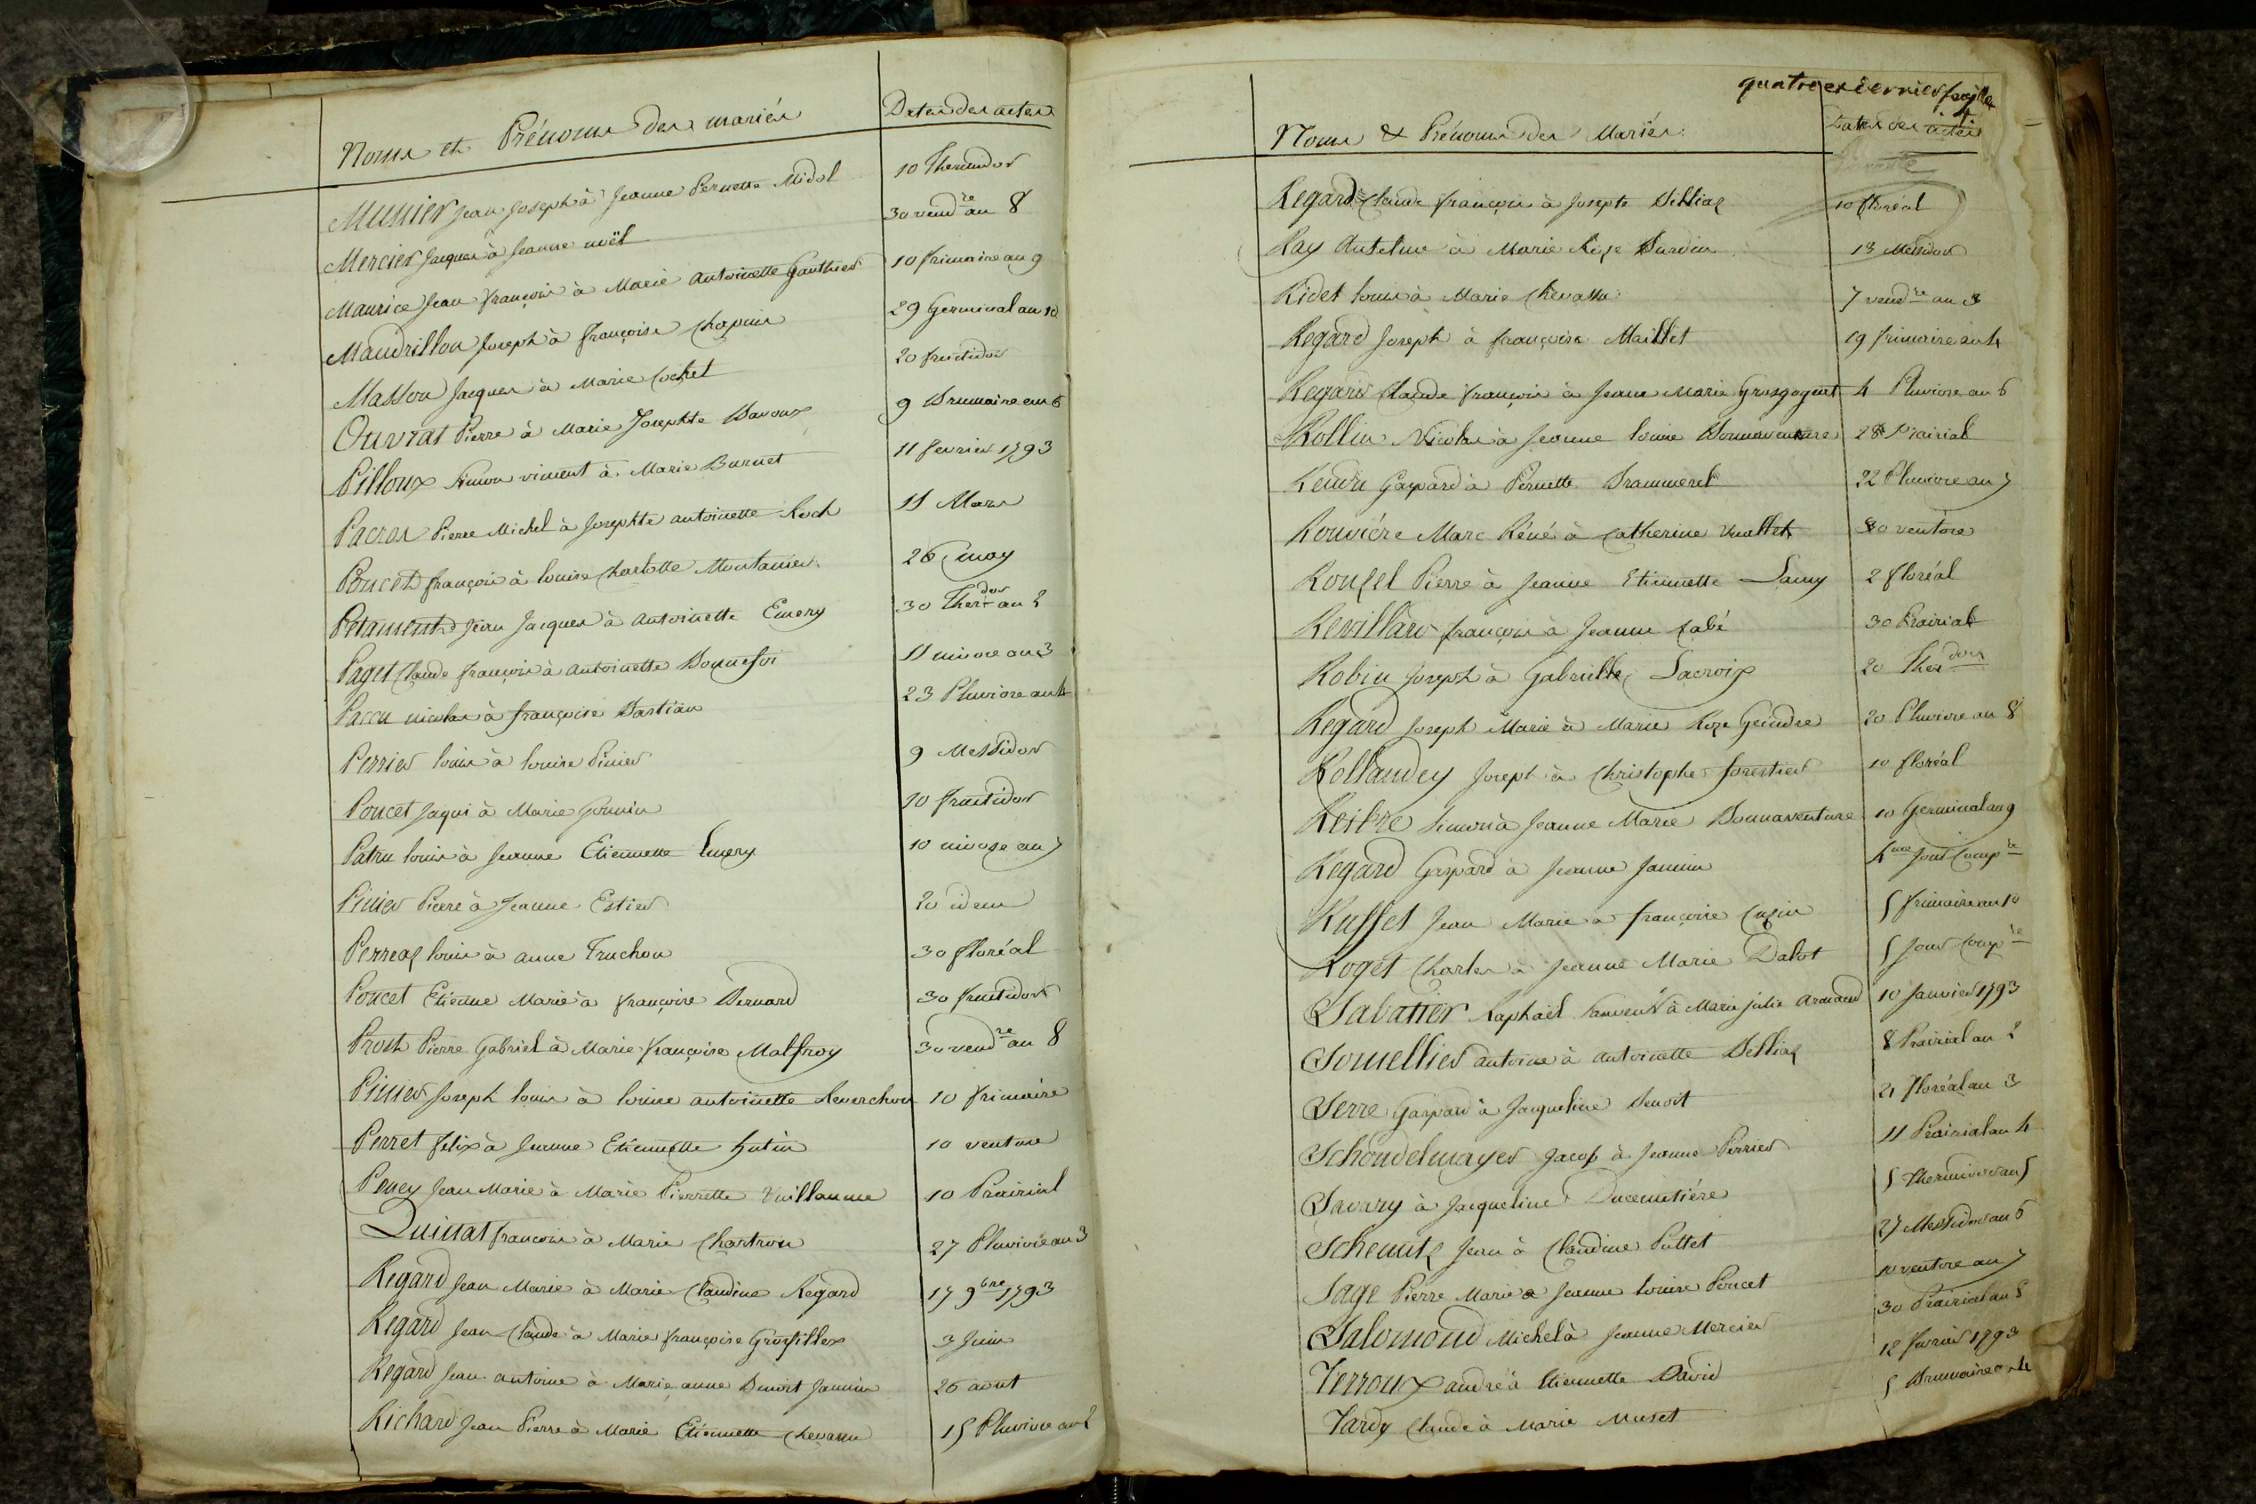 Noms et Prénoms des mariés Dates des actes
Munier Jean Joseph à Jeanne Pernette Midol 10 Thermidor
Mercier Jacques à Jeanne noël 30 vend.re an 8
Maurice Jean françois à Marie Antoinette Gauthier 10 frimaire an 9
Maudrillon Joseph à françoise Chapuis 29 Germinal an 10
Masson Jacques à Marie Cochet 20 fructidor
Ouvrat Pierre à Marie Josephte Davoux 9 Brumaire an 6
Pilloux Simon vincent à Marie Burnet 11 fevrier 1793
Pacros Pierre Michel à Josephte antoinette Roch 11 Mars
Poncet françois à louise Charlotte Montanier 26 may
Petament Jean Jacques à Antoinette Emery 30 Ther.dor an 2
Paget Claude françois à antoinette Bonnefoi 11 nivose an 3
Paccu nicolas à françoise Bastian 23 Pluviose an 4
Perrier louis à louise Pinier 9 Messidor
Poncet Jaques à Marie Gounin 10 fructidor
Patru louis à Jeanne Etiennette Emery 10 nivose an 7
Pinier Pierre à Jeanne Estier 20 idem
Perreaz louis à anne Truchon 30 floréal
Poncet Etienne Marie à françoise Bernard 30 fructidor
Prost Pierre Gabriel à Marie françoise Malfroy 30 vend.re an 8
Pinier Joseph louis à louise antoinette Leverchon 10 frimaire
Perret felix à Jeanne Etiennette hutin 10 ventose
Peney Jean Marie à Marie Pierrette Vuillaume 10 Prairial
Quinat francois à Marie Chartron 27 Pluviose an 3
Regard Jean Marie à Marie Claudine Regard 17 9bre 1793
Regard Jean Claude à Marie françoise Grosfillex 3 Juin
Regard Jean antoine à Marie anne Benoit Jannin 26 aout
Richard Jean Pierre à Marie Etiennette Chevassu 15 Pluviose an 2
quatre et dernier feuillet
4.
Noms & Prénoms des Mariés Dates des actes
Regard Claude françois à Josepte Billiaz 10 floréal
Ray Antelme à Marie Rose Burdin 13 Messidor
Ridet louis à Marie Chevassu 7 vend.re an 3
Regard Joseph à françoise Maillet 19 frimaire an 4
Regard Claude françois à Jeanne Marie Grosgogeat 4 Pluviose an 6
Rollin Nicolas à Jeanne louise Bonnaventure 28 Prairial
Rendu Gaspard à Pernette Brammerel 22 Pluviose an 7
Rouviére Marc Réné à Catherine Vuallet 30 ventose
Roussel Pierre à Jeanne Etiennette Lamy 2 floréal
Revillard françois à Jeanne Cabé 30 Prairial
Robin Joseph à Gabrielle Lacroix 20 Ther.dor
Regard Joseph Marie à Marie Roze Geindre 20 Pluviose an 8
Rollandey Joseph à Christophe forestier 10 floréal
Reibre Simon à Jeanne Marie Bonnaventure 10 Germinal an 9
Regard Gaspard à Jeanne Jannin 4me Jour Comp.re
Ruffet Jean Marie à françoise Cusin 5 frimaire an 10
Roget Charles à Jeanne Marie Dalot 5 Jour Comp.re
Sabatier Raphaël à Marie Julie Armand 10 Janvier 1793
Somellier antoine à antoinette Billiaz 8 Prairial an 2
Serre Gaspard à Jacqueline Benoit 21 floréal an 3
Schondelmayer Jacob à Jeanne Perrier 11 Prairial an 4
Savary à Jacqueline Ducemetiére 5 Thermidor an 5
Schemitz Jean à Claudine Puttet 27 Messidor an 6
Sage Pierre Marie à Jeanne louise Poncet 10 ventose an 7
Salomond Michel à Jeanne Mercier 30 Prairial an 8
Terroux andré à Etiennette David 12 fevrier 1793
Tardy Claude à Marie Muset 5 Brumaire an 4